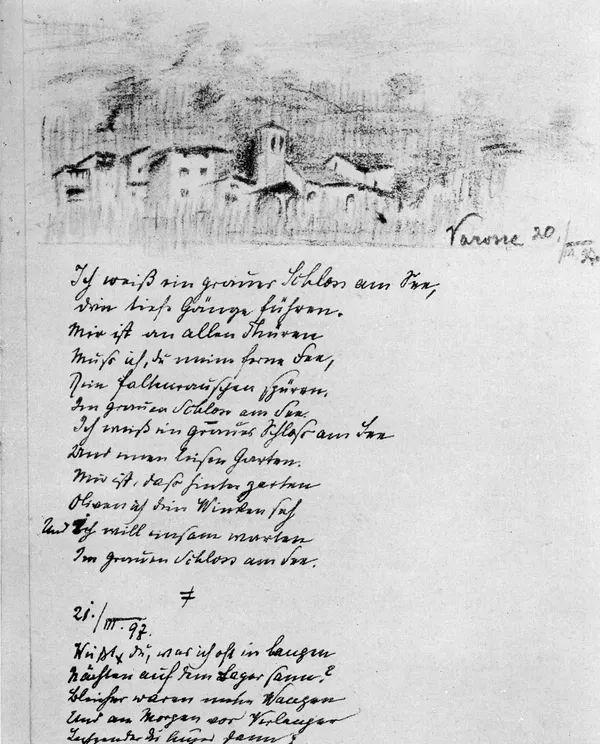 Varone 20./III. 97.
Ich weiß ein graues Schloss am See,
drin tiefe Gänge führen.
Mir ist an allen Thüren
Muss ich, du meine ferne Fee,
Dein Faltenrauschen spüren.
Im grauen Schloss am See.
Ich weiß ein graues Schloß am See
Und einen leisen Garten.
Mir ist, daß hinter zarten
Oliven ich dein Winken seh
Und Ich will einsam warten
Im grauen Schloss am See.
21./III. 97.
Weißt du, was ich oft in bangen
Nächten auf dem Lager sann?
Bleicher waren meine Wangen
Und am Morgen vor Verlangen
die Augen dann